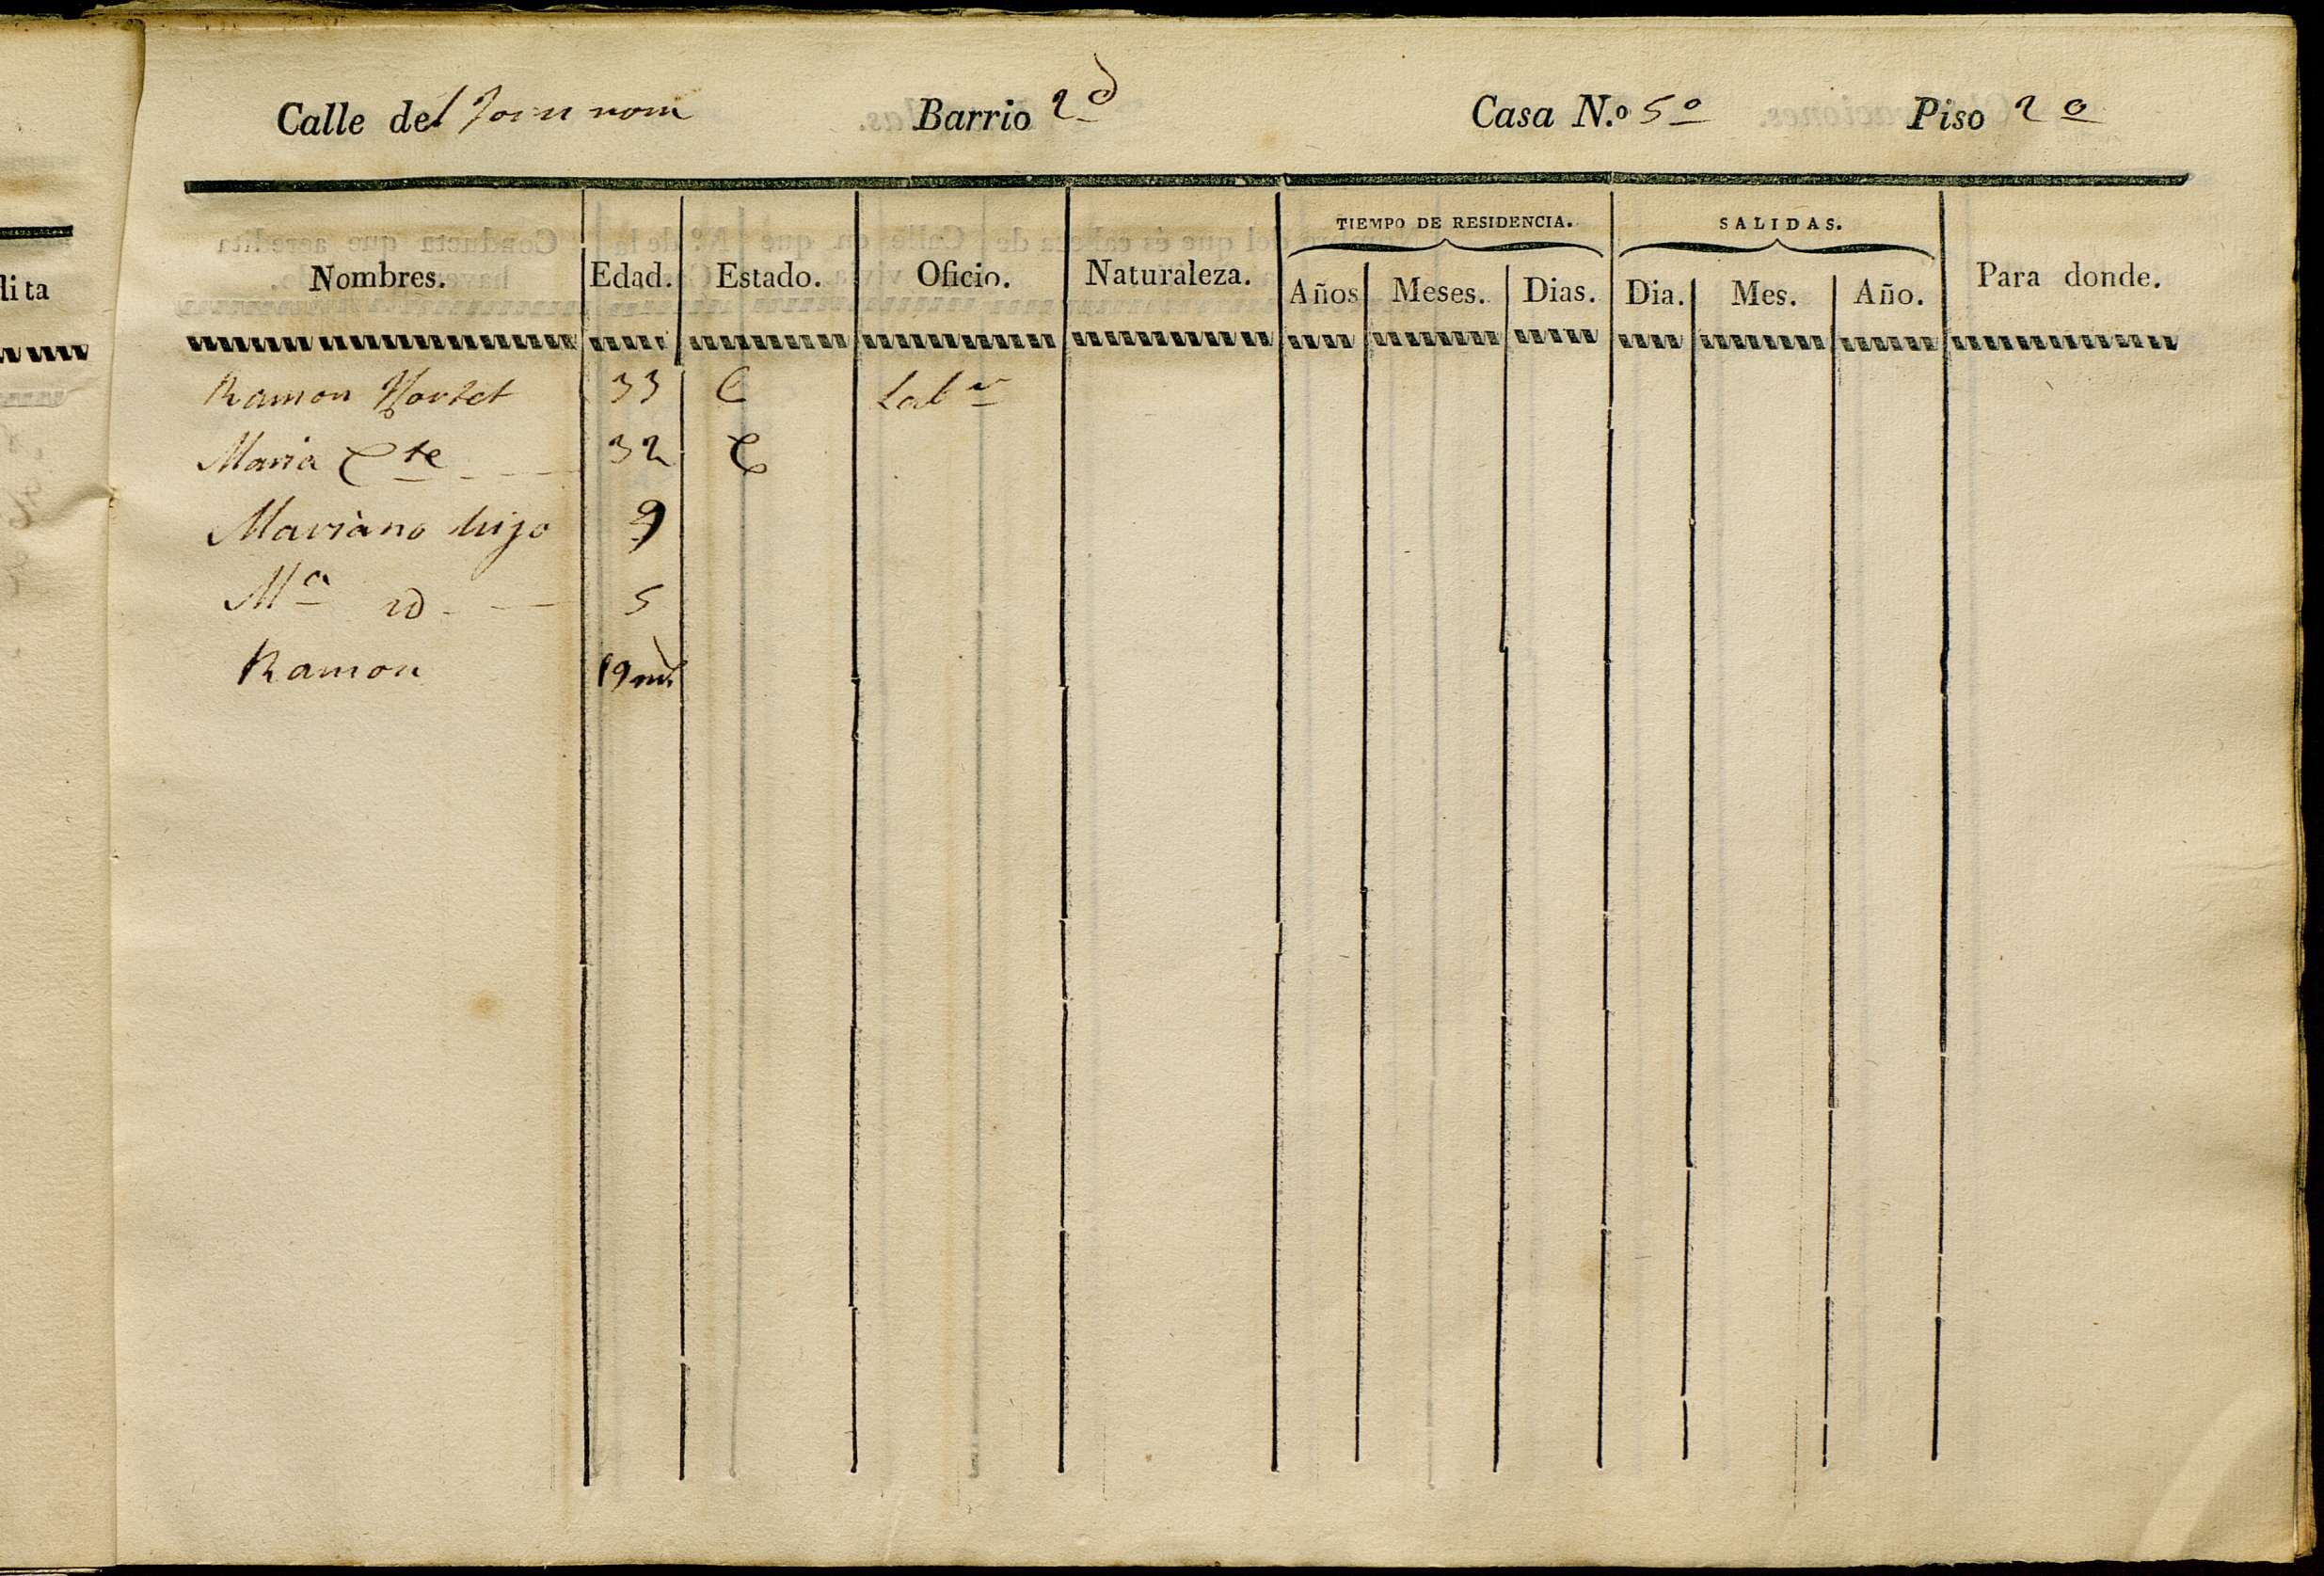 Calle del nom Barrio 2º Casa N.º 5º Piso 2º
TIEMPO DE RESIDENCIA. SALIDAS.
Nombres. Edad. Estado. Oficio. Naturaleza. Años Meses. Dias. Dia. Mes. Año. Para donde.
Ramon 33 C Labr
Maria Cte 32 C
Mariano hijo 9
Mª id 5
Ramon 19 ms
lita